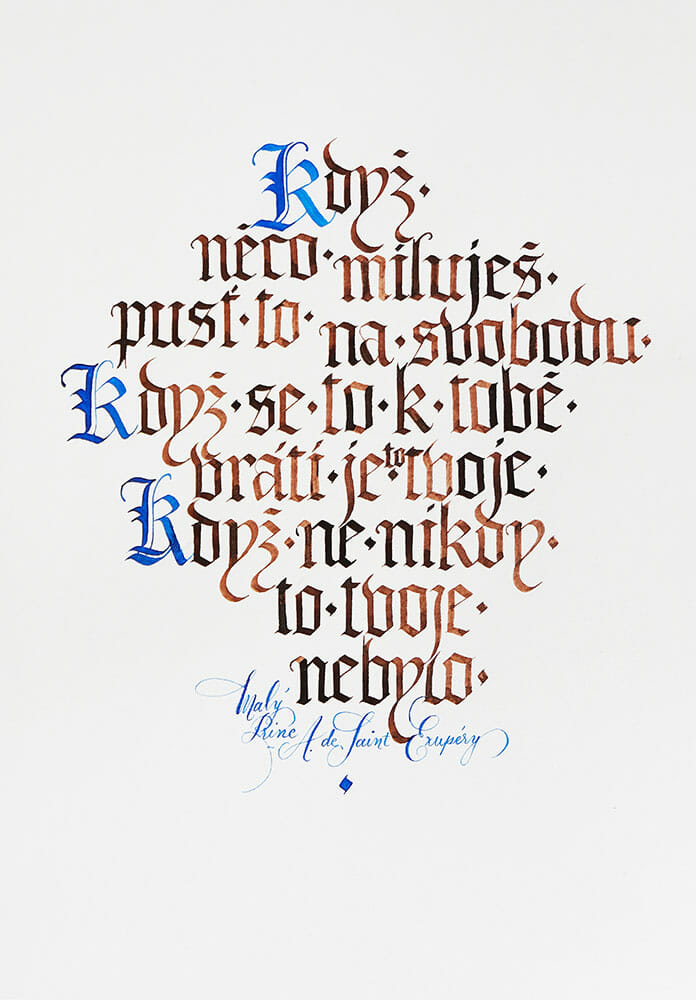 Když·
něco·miluješ·
pusť·to·na·svobodu·
Když·se·to·k·tobě·
vrátí·je to tvoje·
Když·ne·nikdy·
to·tvoje·
nebylo·
Malý
Princ A. de Saint Exupéry